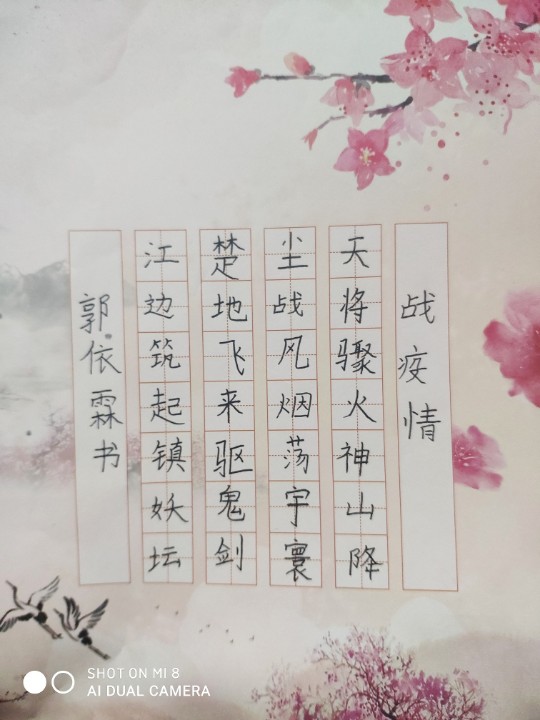 战疫情
天将骤火神山降
尘战风烟荡宇寰
楚地飞来驱鬼剑
江边筑起镇妖坛
郭依霖书
SHOT ON MI 8
AI DUAL CAMERA